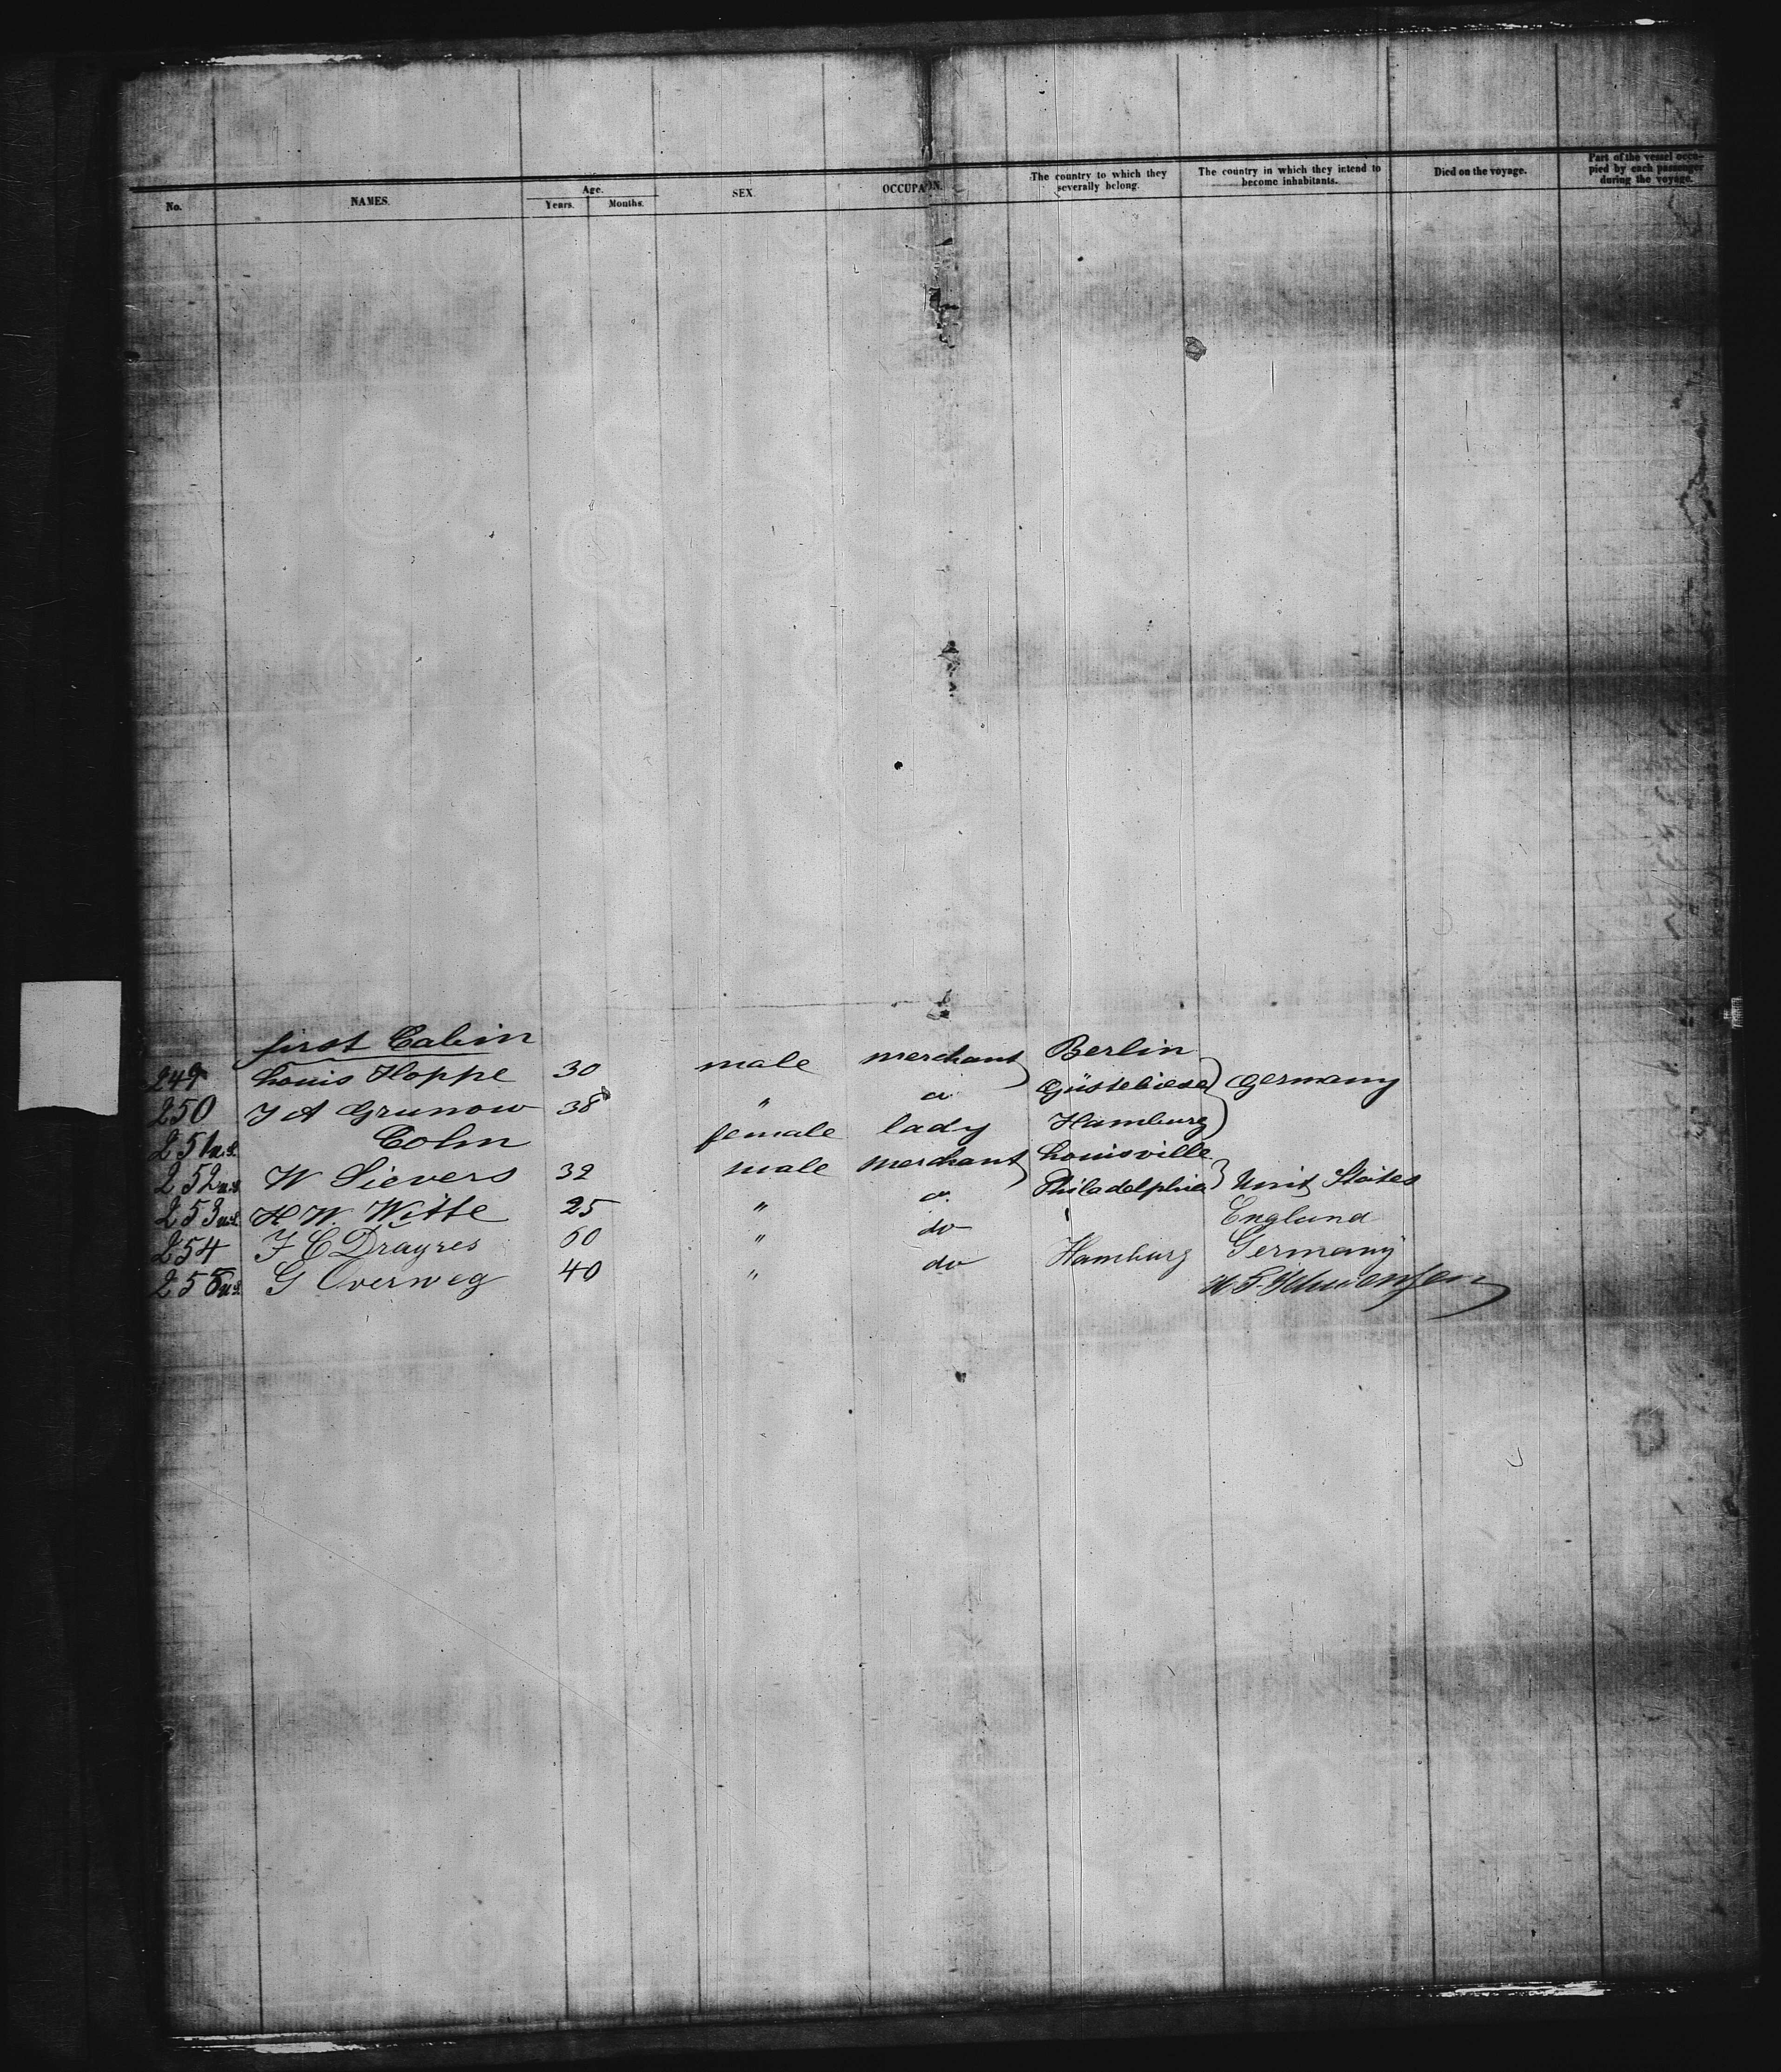 No. NAMES. Age. Years. Months. SEX. OCCUPATION. The country to which they severally belong. The country in which they intend to become inhabitants. Died on the voyage. Part of the vessel occupied by each passenger during the voyage.
first Cabin
249 Louis Hoppe 30 male merchant Berlin
250 J A Grunow 38 " Güstebiese Germany
251 Cohn female lady Hamburg
252 W Sievers 32 male merchant Louisville
253 H W. Witte 25 " Philadelphia Unit States
254 F C Drayres 60 " do England
255 G Overweg 40 " do Hamburg Germany